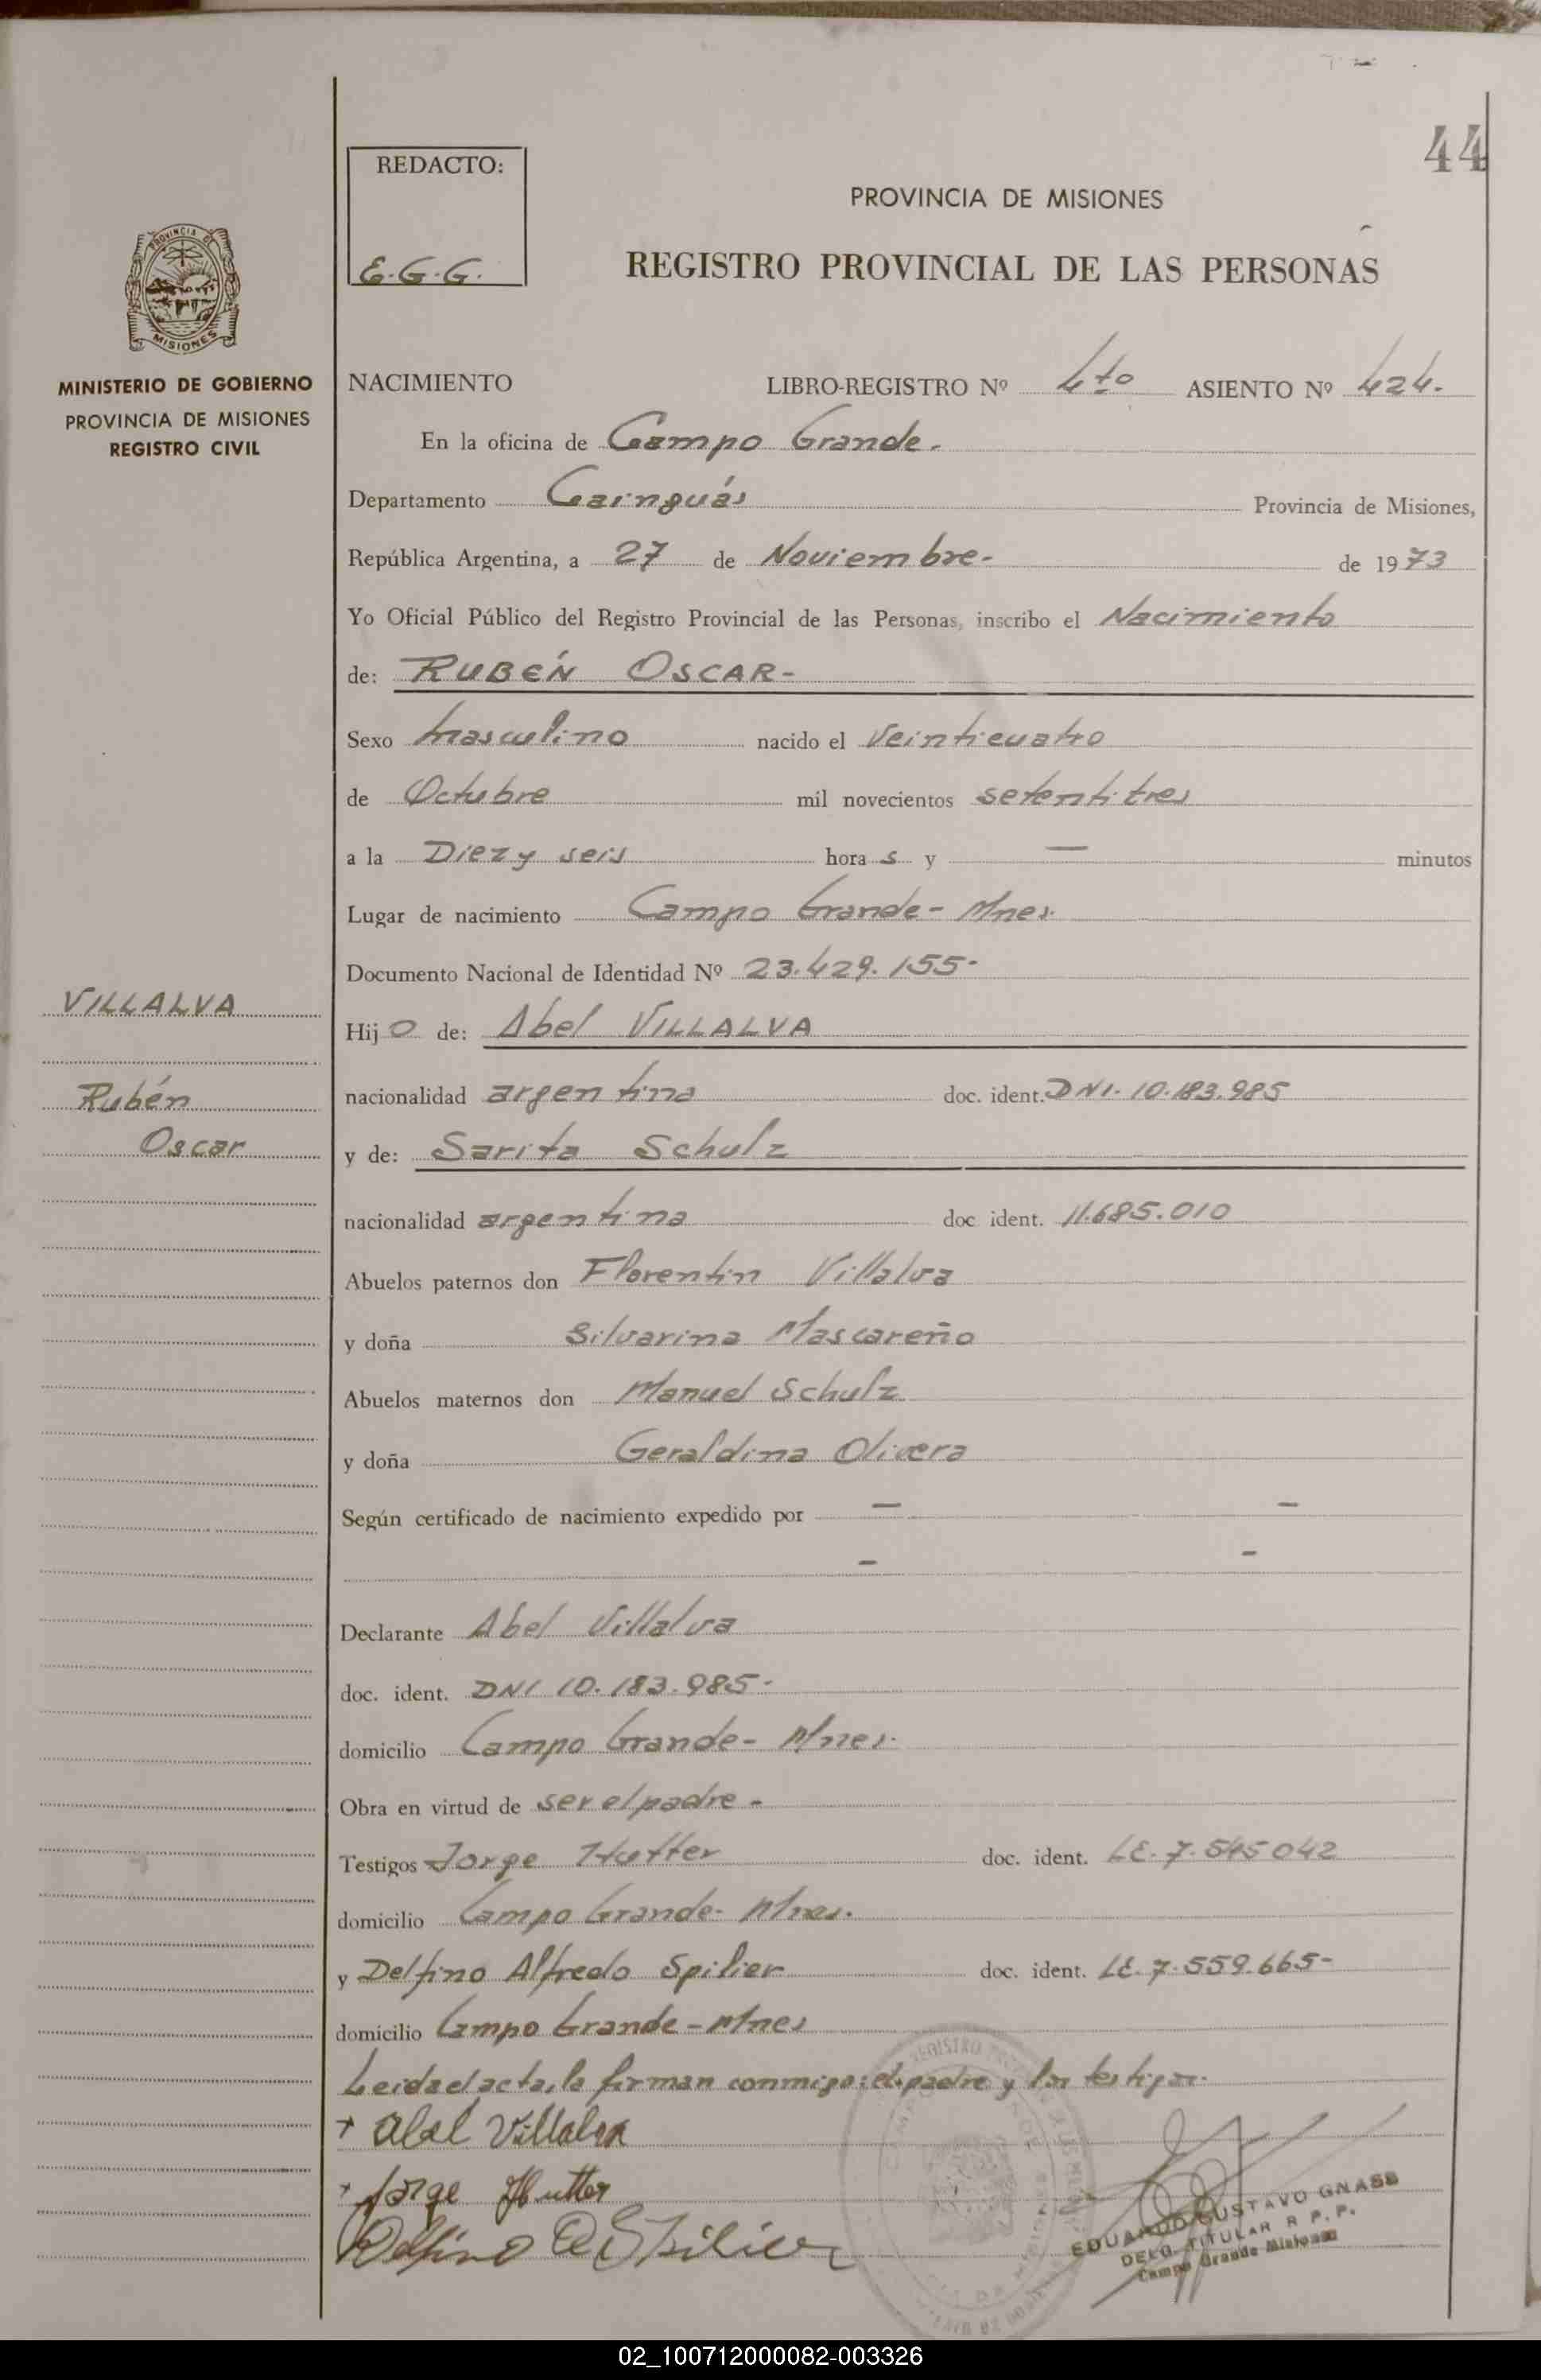 44
REDACTO:
E.G.G.
PROVINCIA DE MISIONES
REGISTRO PROVINCIAL DE LAS PERSONAS
PROVINCIA DE
MISIONES
MINISTERIO DE GOBIERNO
PROVINCIA DE MISIONES
REGISTRO CIVIL
NACIMIENTO LIBRO-REGISTRO Nº 4to ASIENTO Nº 424.
En la oficina de Campo Grande.
Departamento Cainguás Provincia de Misiones,
República Argentina, a 27 de Noviembre- de 1973
Yo Oficial Público del Registro Provincial de las Personas, inscribo el Nacimiento
de: RUBÉN OSCAR-
Sexo masculino nacido el veinticuatro
de Octubre mil novecientos setentitres
a la Diez y seis hora s y — minutos
Lugar de nacimiento Campo Grande- Mnes.
Documento Nacional de Identidad Nº 23.429.155-
VILLALVA
Rubén
Oscar
Hij o de: Abel VILLALVA
nacionalidad argentina doc. ident. DNI. 10.183.985
y de: Sarita Schulz
nacionalidad argentina doc ident. 11.685.010
Abuelos paternos don Florentin Villalva
y doña Silvarina Mascareño
Abuelos maternos don Manuel Schulz
y doña Geraldina Olivera
Según certificado de nacimiento expedido por — —
— —
Declarante Abel Villalva
doc. ident. DNI 10.183.985-
domicilio Campo Grande- Mnes.
Obra en virtud de ser el padre-
Testigos Jorge Hutter doc. ident. LE. 7.545042
domicilio Campo Grande- Mnes.
y Delfino Alfredo Spilier doc. ident. LE. 7.559.665-
domicilio Campo Grande-Mnes
Leida el acta, la firman conmigo: el padre y los testigos.
+ Abel Villalva
+ Jorge Hutter
Delfino A Spilier
EDUARDO GUSTAVO GNASS
DELG. TITULAR R P. P.
Campo Grande Misiones
02_100712000082-003326